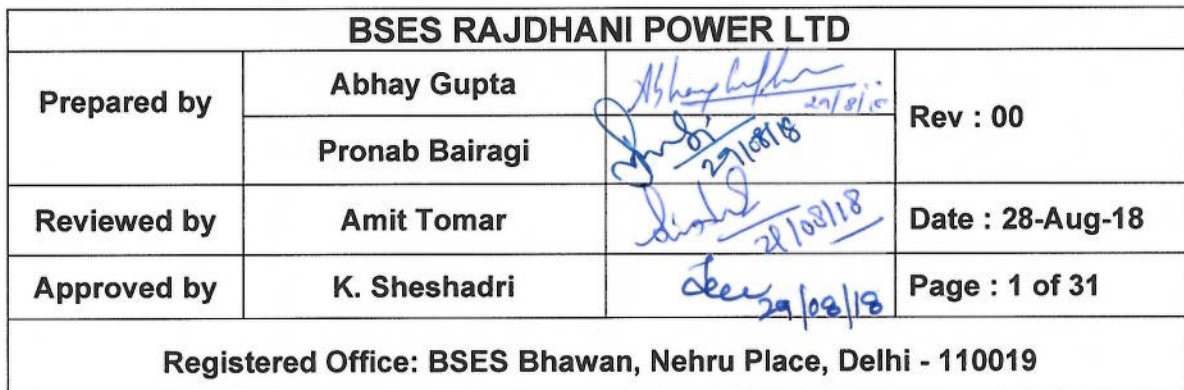 BSES RAJDHANI POWER LTD
Prepared by
Abhay Gupta
Abhay Gupta
29/8/18
Rev : 00
Pronab Bairagi
29/08/18
Reviewed by
Amit Tomar
28/08/18
Date : 28-Aug-18
Approved by
K. Sheshadri
29/08/18
Page : 1 of 31
Registered Office: BSES Bhawan, Nehru Place, Delhi - 110019